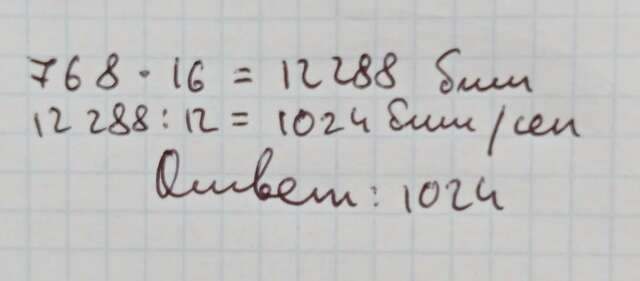 768 · 16 = 12288 бит
12288 : 12 = 1024 бит/сек
Ответ: 1024